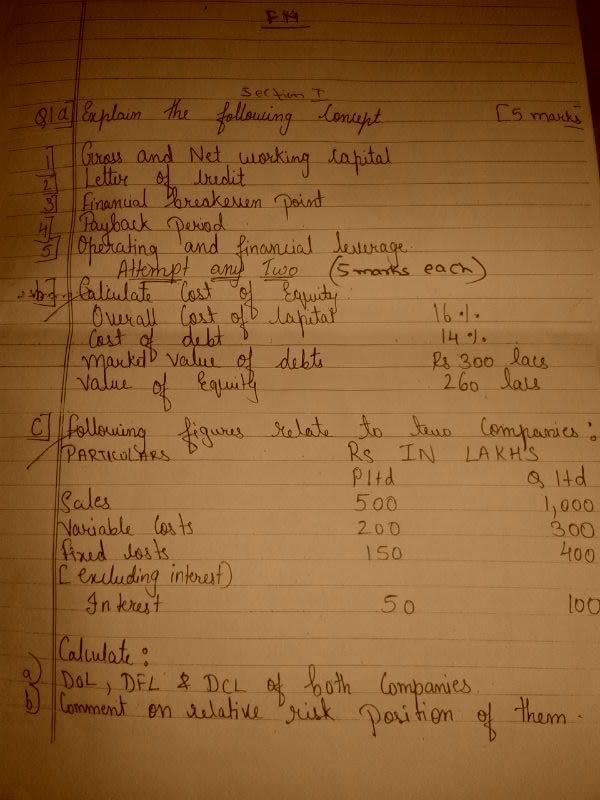 FM
Section I
Q1a] Explain the following Concept [5 marks
1] Gross and Net working capital
2] Letter of credit
3] Financial Breakeven point
4] Payback Period
5] Operating and financial leverage.
Attempt any Two (5 marks each)
Calculate Cost of Equity
Overall Cost of Capital 16%
Cost of debt 14%
Market value of debts Rs 300 lacs
Value of Equity 260 lacs
C] Following figures relate to two Companies:
PARTICULARS Rs IN LAKHS
P ltd Q ltd
Sales 500 1,000
Variable Costs 200 300
Fixed costs 150 400
[excluding interest)
Interest 50 100
Calculate:
a) DOL, DFL & DCL of both Companies.
b) Comment on relative risk position of them.